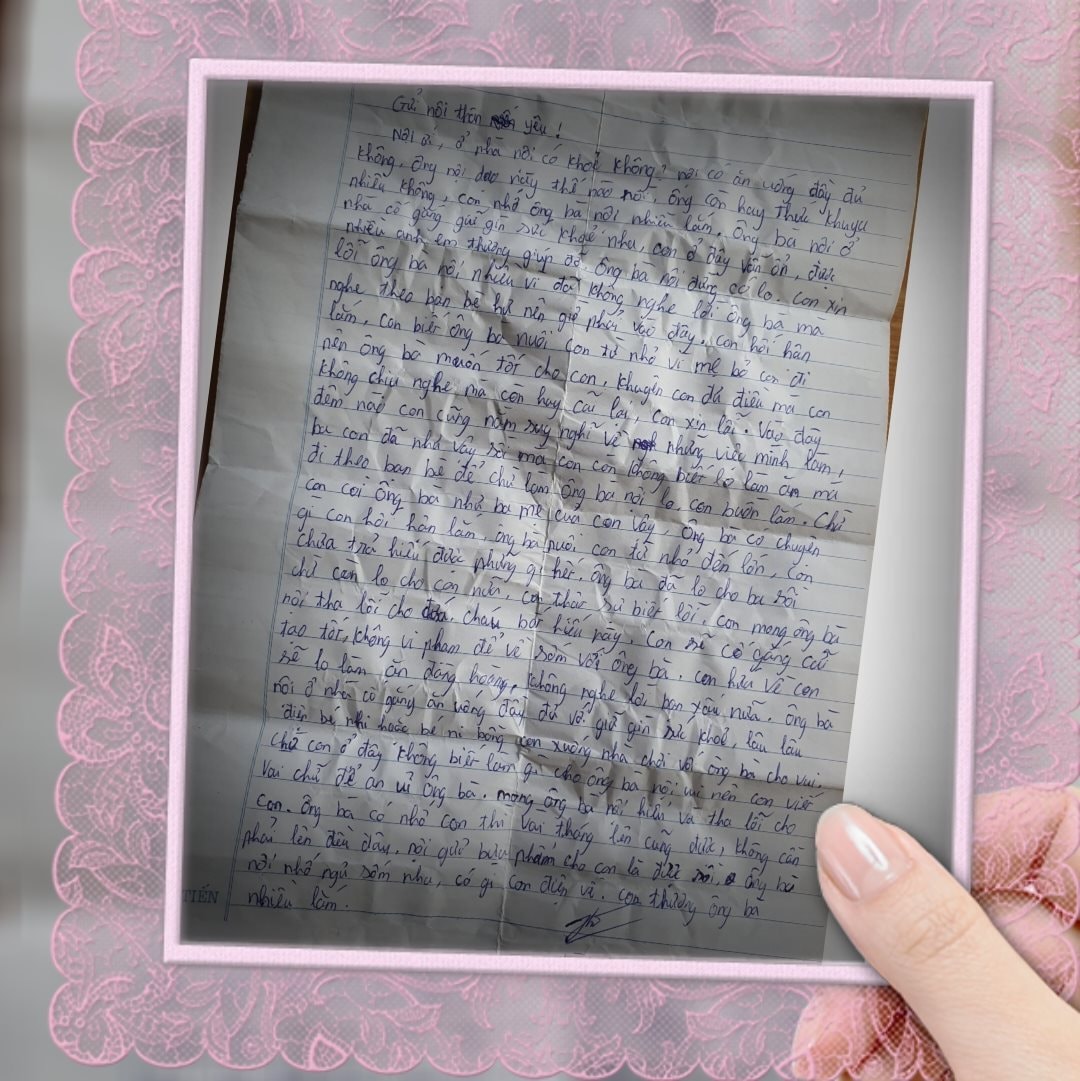 Gửi nội thân yêu!
Nội ơi, ở nhà nội có khoẻ không? nội có ăn uống đầy đủ
không, ông nội dạo này thế nào nội, ông còn hay thức khuya
nhiều không, con nhớ ông bà nội nhiều lắm, ông bà nội ở
nhà cố gắng giữ gìn sức khoẻ nha, con ở đây vẫn ổn, được
nhiều anh em thương giúp đỡ ông bà nội đừng có lo. con xin
lỗi ông bà nội nhiều vì đã không nghe lời ông bà mà
nghe theo bạn bè hư nên giờ phải vào đây. con hối hận
lắm, con biết ông bà nuôi con từ nhỏ vì mẹ bỏ con đi
nên ông bà muốn tốt cho con, khuyên con đủ điều mà con
không chịu nghe mà còn hay cãi lại. con xin lỗi. Vào đây
đêm nào con cũng nằm suy nghĩ về những việc mình làm,
ba con đã như vậy rồi mà con còn không biết lo làm ăn mà
đi theo bạn bè để chi làm ông bà nội lo, con buồn lắm. Chi
con coi ông bà như ba mẹ của con vậy. ông bà có chuyện
gì con hối hận lắm, ông bà nuôi con từ nhỏ đến lớn, con
chưa trả hiếu được phụng gì hết. ông bà đã lo cho ba rồi
chứ còn lo cho con nữa, con thật sự biết lỗi, con mong ông bà
nội tha lỗi cho cháu bất hiếu này. Con sẽ cố gắng cải
tạo tốt, không vi phạm để về sớm với ông bà. con hứa về con
sẽ lo làm ăn đàng hoàng, không nghe lời bạn xấu nữa. ông bà
nội ở nhà cố gắng ăn uống đầy đủ và giữ gìn sức khoẻ, lâu lâu
điện bé nhi hoặc bé ni bồng con xuống nhà chơi với ông bà cho vui,
chứ con ở đây không biết làm gì cho ông bà nội vui nên con viết
vài chữ để an ủi ông bà. mong ông bà nội hiểu và tha lỗi cho
con. ông bà có nhớ con thì vài tháng lên cũng được, không cần
phải lên đều đâu, nội gửi bưu phẩm cho con là được rồi. ông bà
nội nhớ ngủ sớm nha, có gì con điện về. con thương ông bà
nhiều lắm.
TIẾN